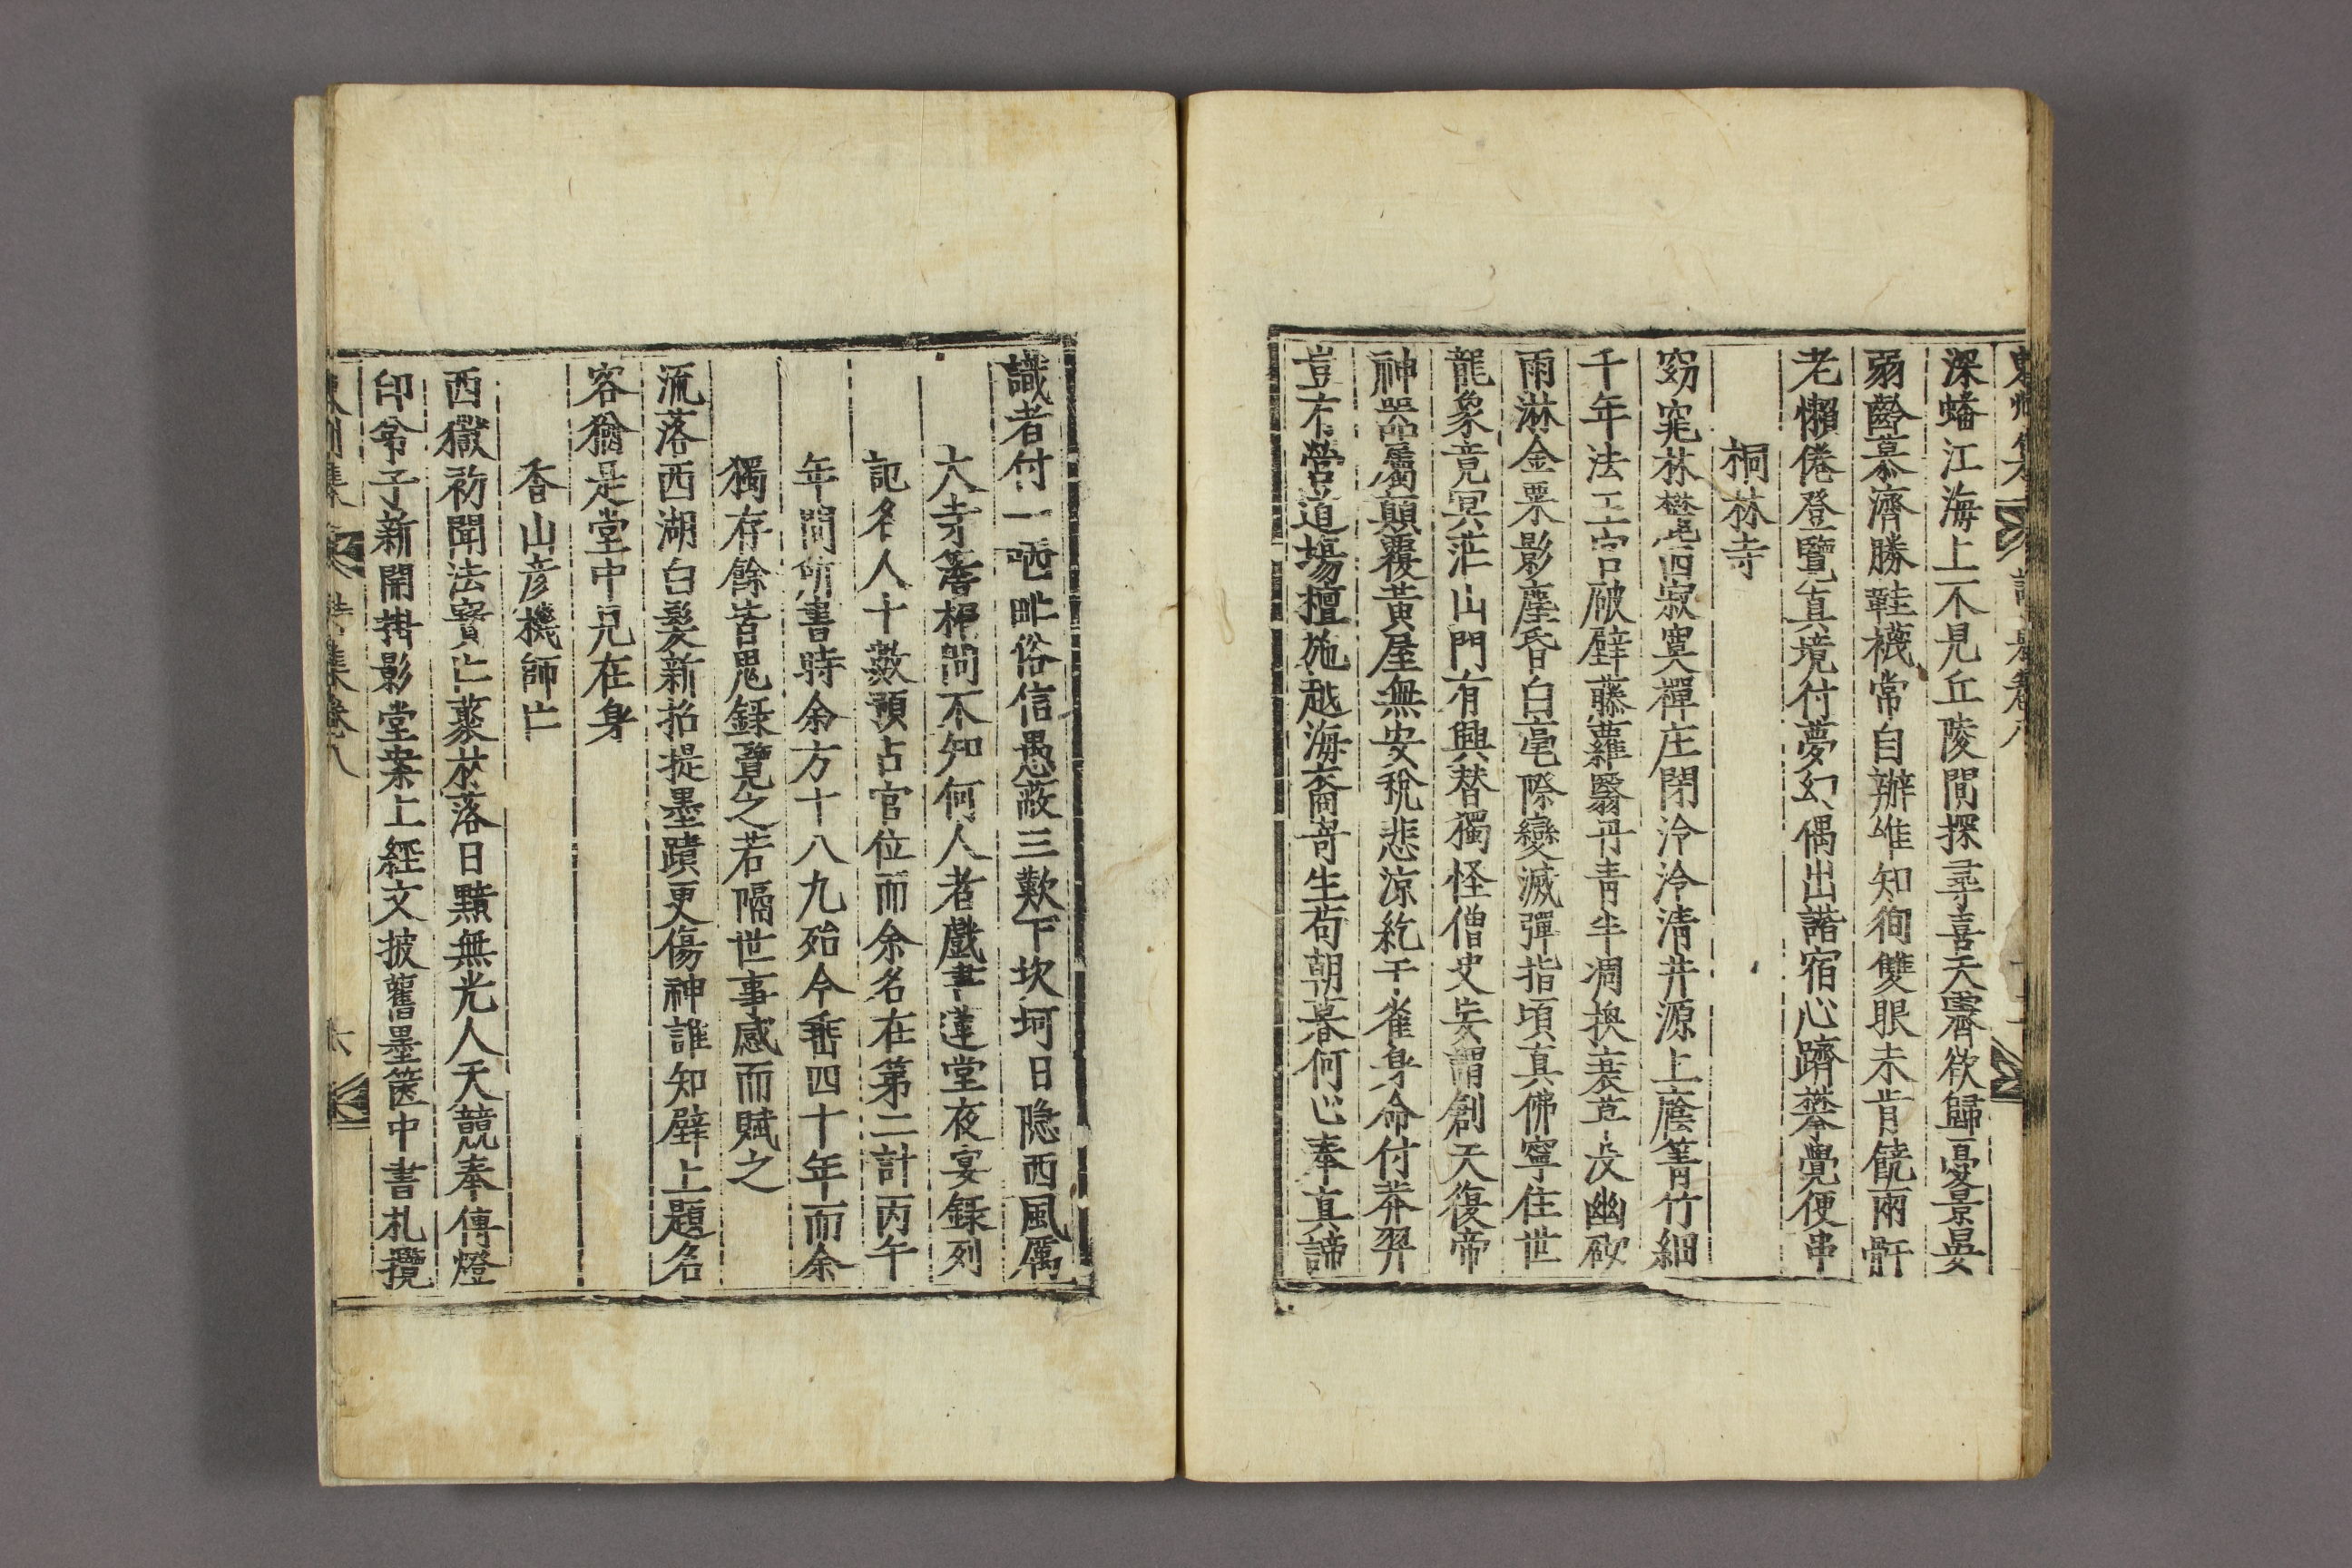 深蟠江海上不見丘陵間探尋喜天霽欲歸憂景晏
弱齡慕濟勝鞋襪常自辦雖知徇雙眼未肯饒兩骭
老懶倦登覽真境付夢幻偶出諧宿心躋攀覺便串
桐林寺
窈窕林巒西寂寞禪庄閉泠泠清井源上蔭菁竹細
千年法王宮破壁藤蘿翳丹青半凋換衰草沒幽砌
雨淋金粟影塵昏白毫際變滅彈指頃真佛寧住世
龍象竟冥茫山門有興替獨怪僧史妄謂創天復帝
神器屬顛覆黃屋無安稅悲涼紇干雀身命付莽羿
豈方營道場擅施越海裔寄生苟朝暮何心奉真諦
識者付一哂毗俗信愚蔽三歎下坎坷日隱西風厲
大寺舊楣間不知何人者戲書蓮堂夜宴錄列
記名人十數預占官位而余名在第二計丙午
年間所書時余方十八九殆今垂四十年而余
獨存餘皆鬼錄覽之若隔世事感而賦之
流落西湖白髮新招提墨蹟更傷神誰知壁上題名
客猶是堂中見在身
香山彦機師亡
西嶽初聞法寶亡叢林落日黯無光人天競奉傳燈
印弟子新開掛影堂案上經文披舊墨篋中書札攬
東州集 卷八 六